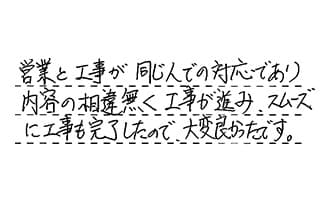 営業と工事が同じ人での対応であり
内容の相違無く工事が進み、スムーズ
に工事も完了したので、大変良かったです。